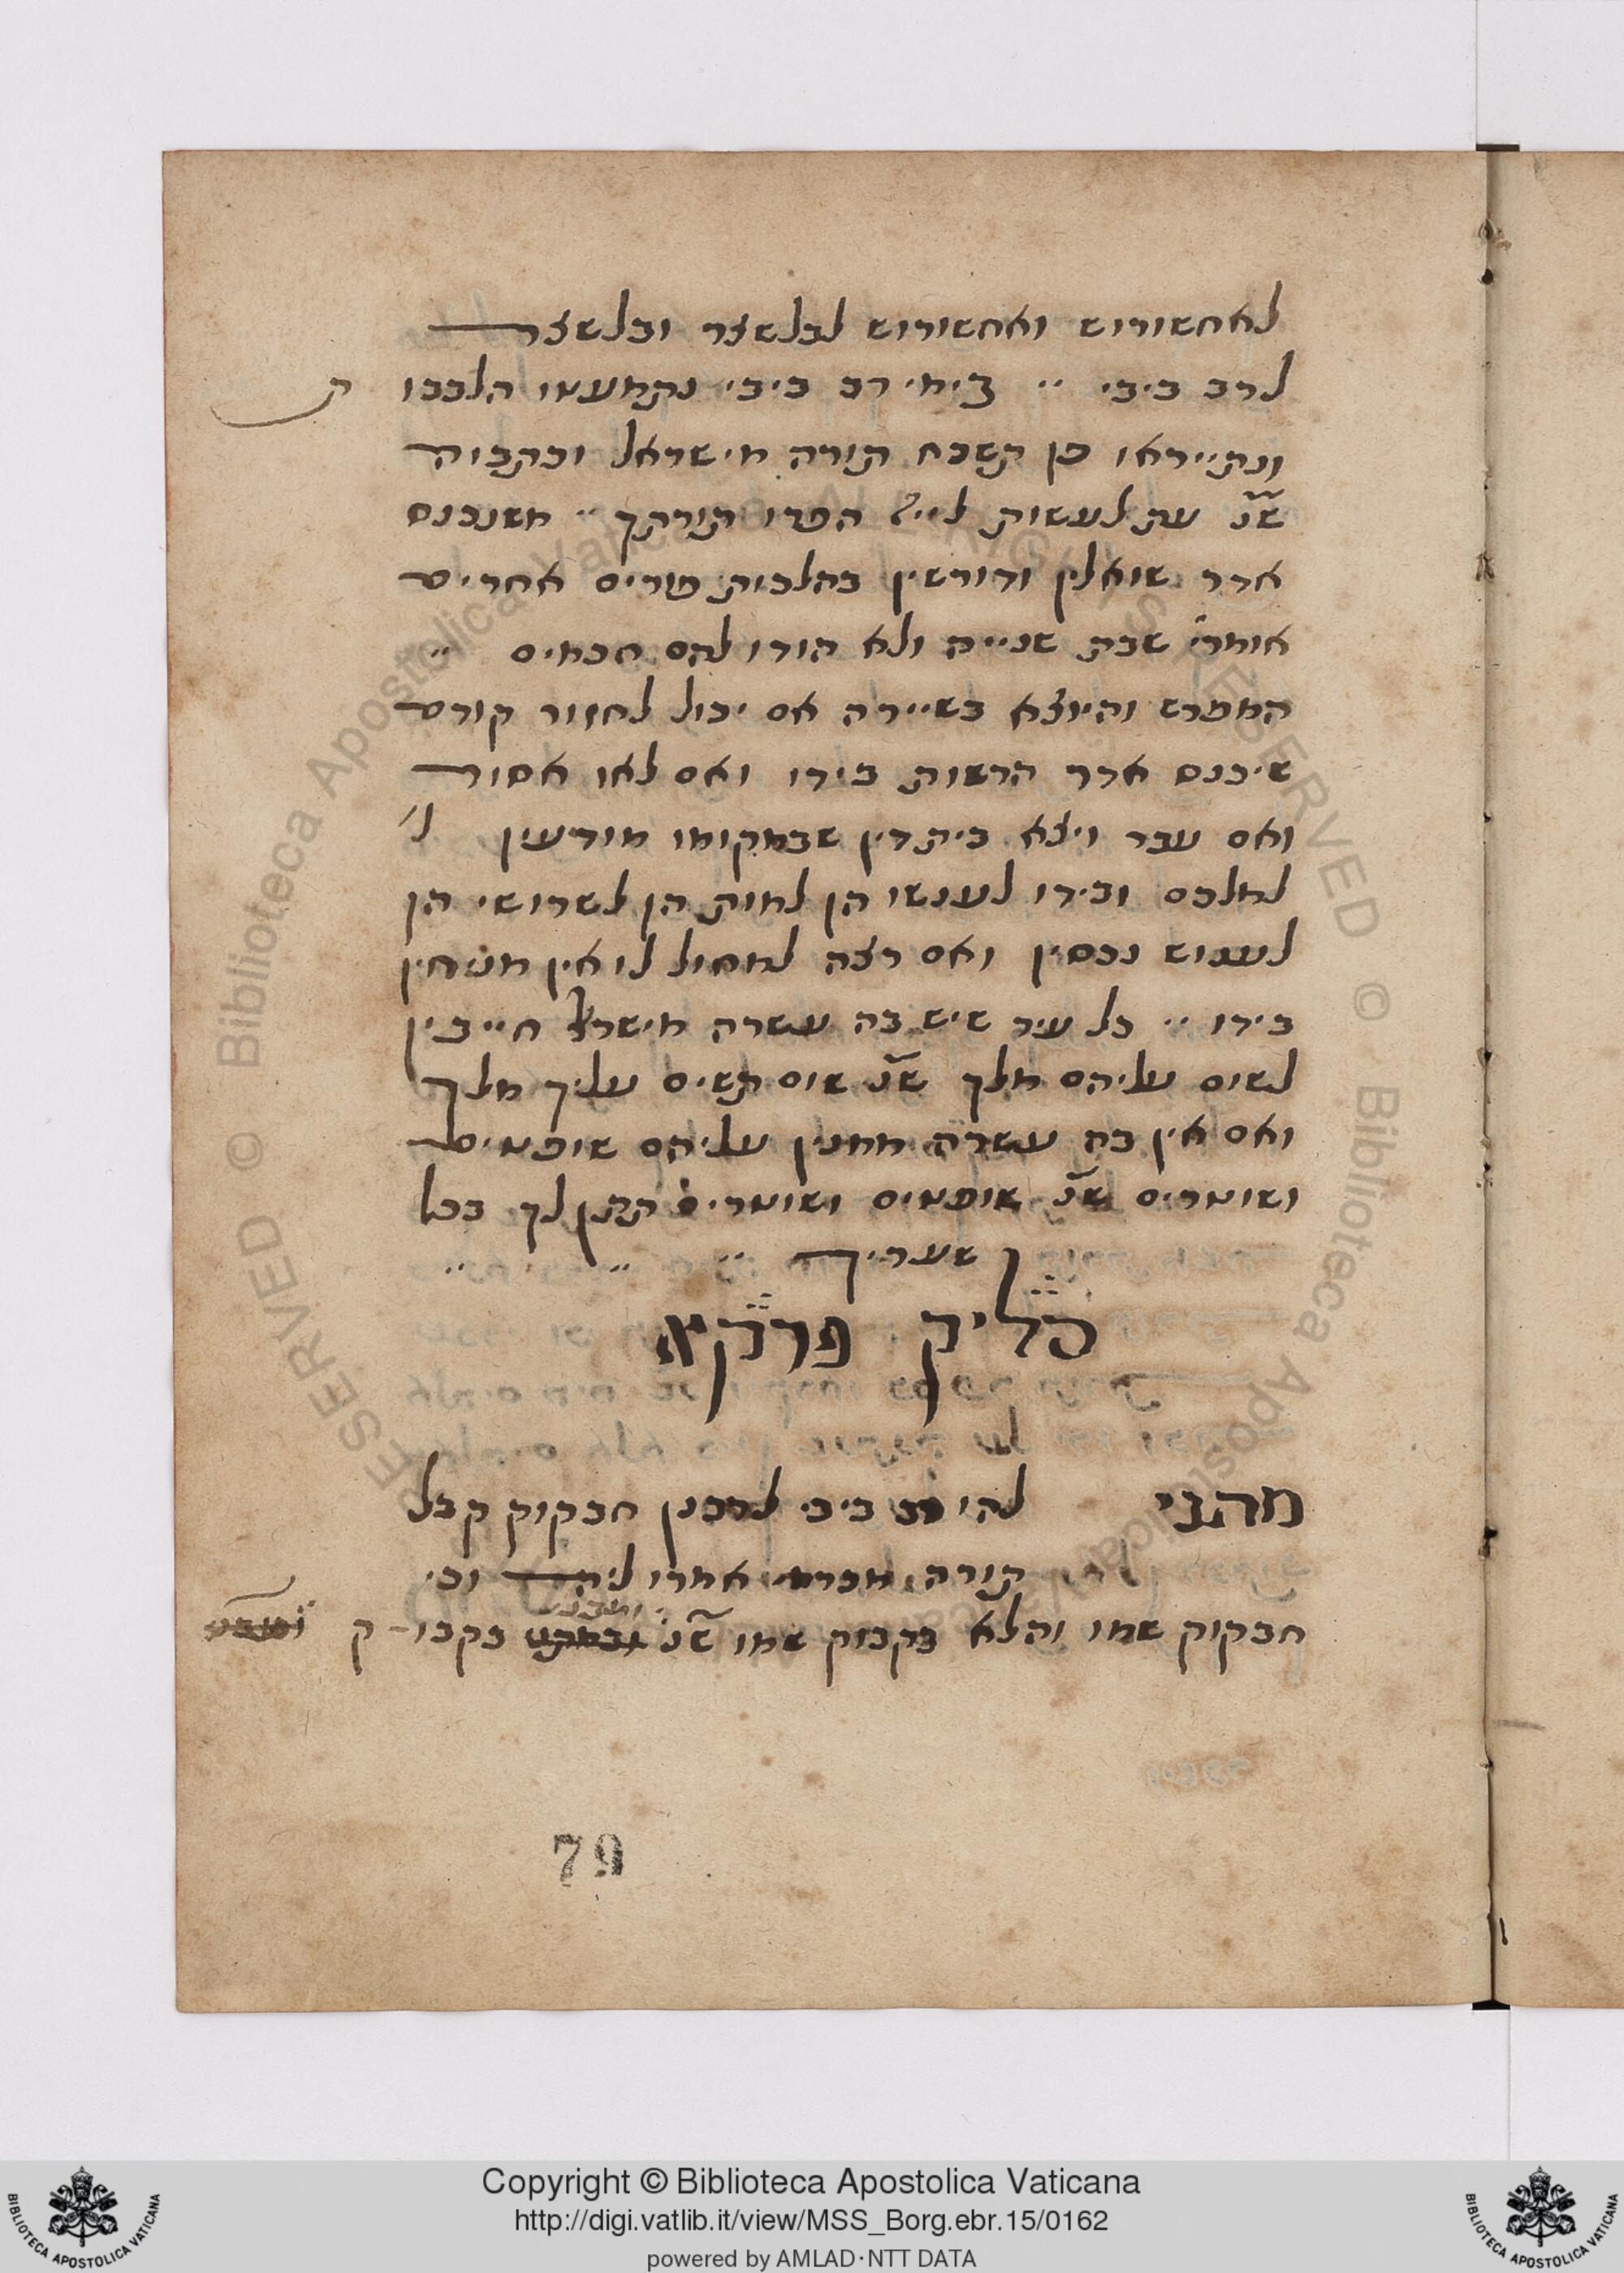 לאחשורוש ואחשורוש לבלשצר ובלשצר
לרב ביבי ·· בימי רב ביבי נתמעטו הלבבו ת
ונתייראו פן תשכח תורה מישראל וכתבוה
שנ עת לעשות לייי הפרו תורתך ·· משנכנס
אדר שואלין ודורשין בהלכות פורים אחרים
אומרי שבת שנייה ולא הודו להם חכמים ··
המפרש והיוצא בשיירה אם יכול לחזור קודם
שיכנס אדר הרשות בידו ואם לאו אסור
ואם עבר ויצא בית דין שבמקומו מודיעין ל׳
למלכם ובידו לענשו הן למות הן לשרושי הן
לענוש נכסין ואם רצה למחול לו אין מניחין
בידו ·· כל עיר שיש בה עשרה מישראל חייבין
לשום עליהם מלך שנ שום תשים עליך מלך
ואם אין בה עשרה ממנין עליהם שופטים
ושוטרים שנ שופטים ושוטרים תתן לך בכל
שעריך ·· ·· ··
סליק פרקא
מתני להו רב ביבי לרבנן חבקוק קבל
תורה אמרו ליה וכי
חבקוק שמו והלא בקבוק שמו שנ בקבו-ק
79
Copyright © Biblioteca Apostolica Vaticana
http://digi.vatlib.it/view/MSS_Borg.ebr.15/0162
powered by AMLAD·NTT DATA
BIBLIOTECA APOSTOLICA VATICANA
BIBLIOTECA APOSTOLICA VATICANA